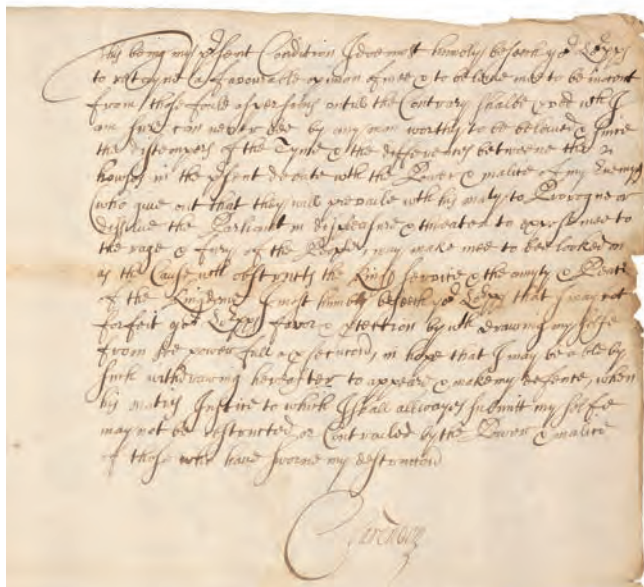 This being my p̃sent Condition I doe most humbly beseech yoʳ Loᵖᵖˢ
to retayne a favourable opinion of mee & to beleeve mee to be inocent
from those foule aspersions untill the Contrary shalbe p̱ved wᶜʰ I
am sure can never bee by any man worthy to be beleived & since
the distempers of the Tyme & the differences betweene the 2
howses in the p̃sent debate wᵗʰ the Power & malice of my Enemys
who give out that they will prevaile wᵗʰ his maᵗʸ to Prorogue or
dissolve the Parliamt in displeasure & threaten to expose mee to
the rage & fury of the People, may make mee to be looked on
as the Cause wᶜʰ obstructs the Kings service & the unity & Peace
of the Kingdome I most humbly beseech yoʳ Loᵖᵖ that I may not
forfeit yoʳ Loᵖᵖˢ favor & p̱tection by wᵗʰdrawing my selfe
from soe powerfull a p̱secucon, in hope that I may be able by
such withdrawing hereafter to appeare & make my defence, when
his maᵗⁱᵉˢ Justice to which I shall allwayes submit my selfe
may not be obstructed or Controuled by the Power & malice
of those who have sworne my destruction
Clarendon